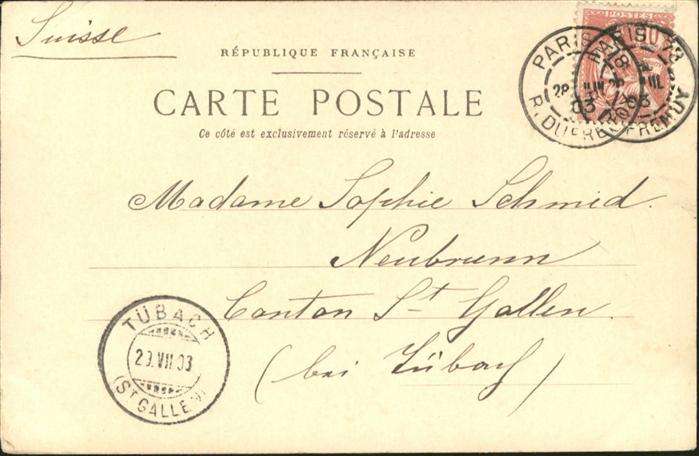 Suisse
RÉPUBLIQUE FRANÇAISE
CARTE POSTALE
Ce côté est exclusivement réservé à l'adresse
POSTES
10
PARIS
28
03
R. DUFRENOY
PARIS 73
03
DUFRENOY
Madame Sophie Schmid.
Neubrunn
Canton St Gallen.
(bei Tübach)
TÜBACH
29.VII.03
(ST GALLEN)